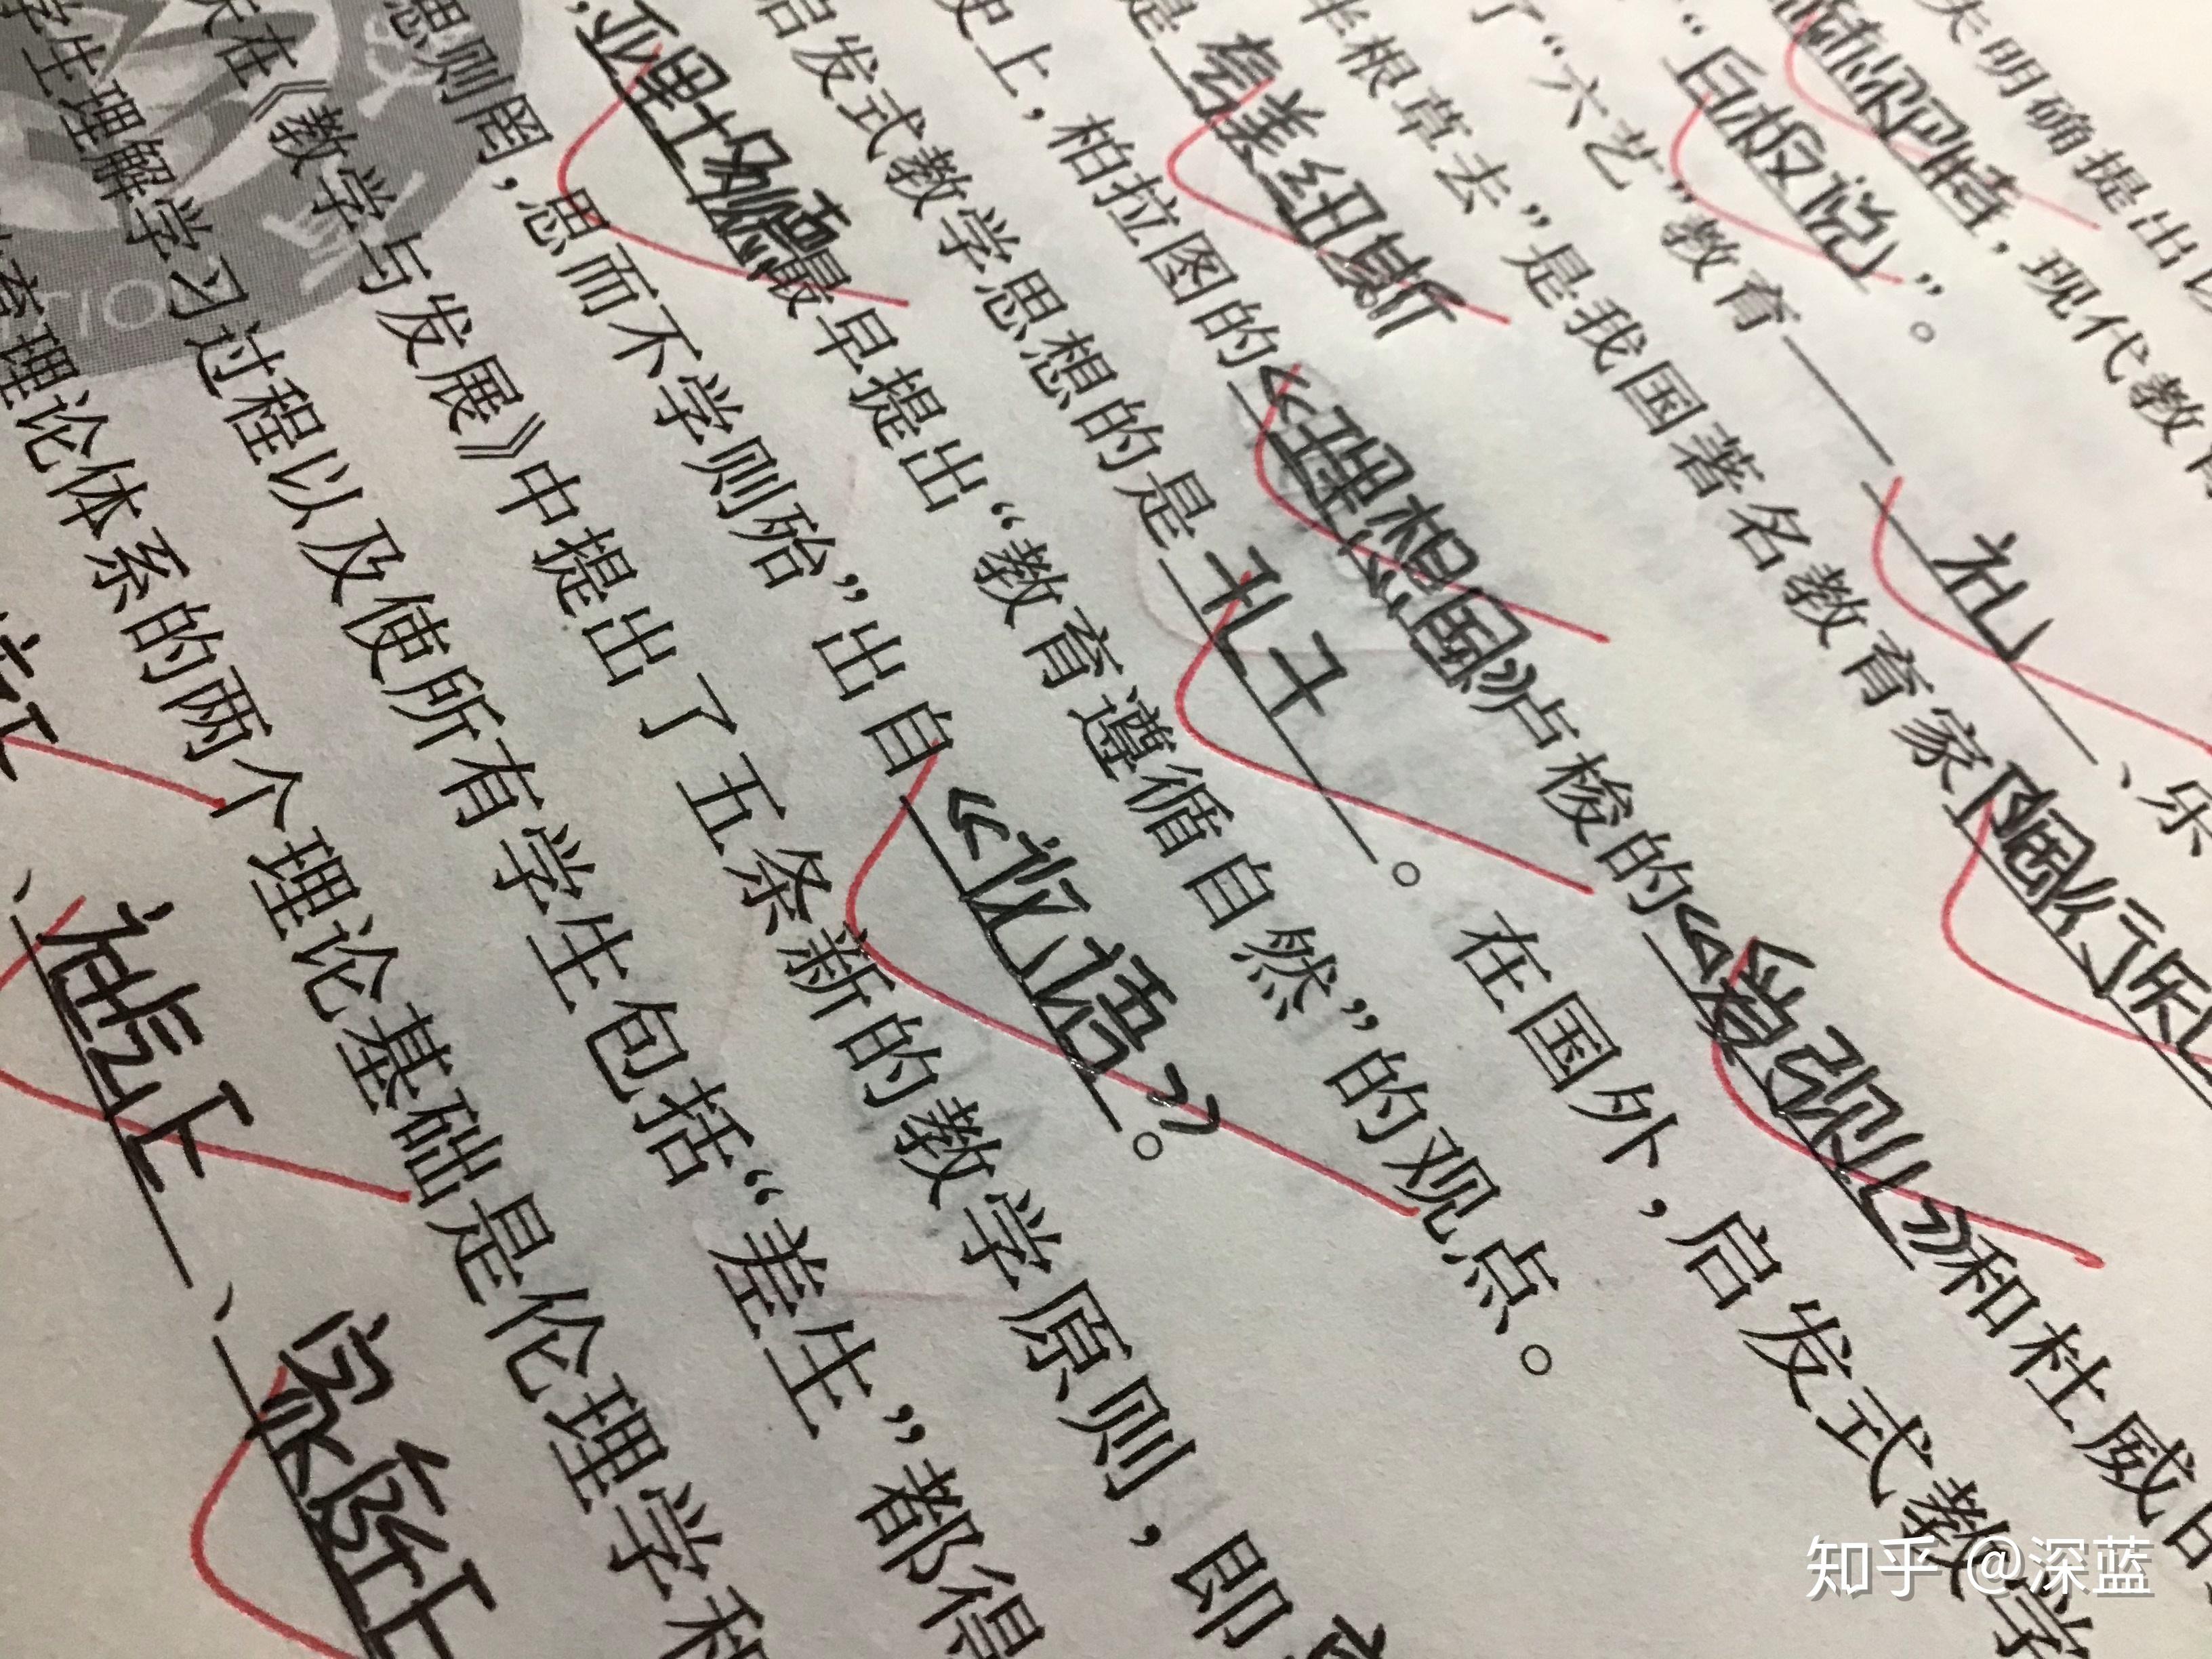 夫明确提出以
巴特，现代教育
“白板说”。
了“六艺”教育——礼、乐
半根草去”是我国著名教育家陶行知
是夸美纽斯
史上，柏拉图的《理想国》卢梭的《爱弥儿》和杜威的
启发式教学思想的是孔子。在国外，启发式教学
，亚里士多德最早提出“教育遵循自然”的观点。
思则罔，思而不学则殆”出自《论语》。
天在《教学与发展》中提出了五条新的教学原则，即
学生理解学习过程以及使所有学生包括“差生”都得
育理论体系的两个理论基础是伦理学和
TION
知乎 @深蓝